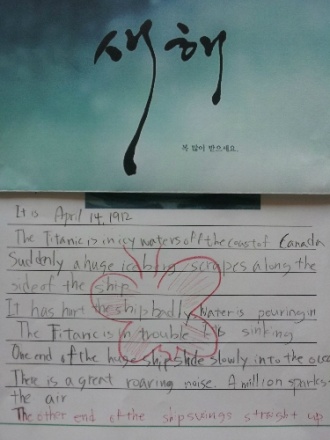 새해
복 많이 받으세요.
It is April 14, 1912
The Titanic is in icy waters off the coast of Canada
Suddenly a huge iceberg scrapes along the
side of the ship
It has hurt the ship badly Water is pouring in
The Titanic is in trouble It is sinking
One end of the huge ship slide slowly into the ocea
There is a great roaring noise. A million sparks
the air
The other end of the ship swings straight up